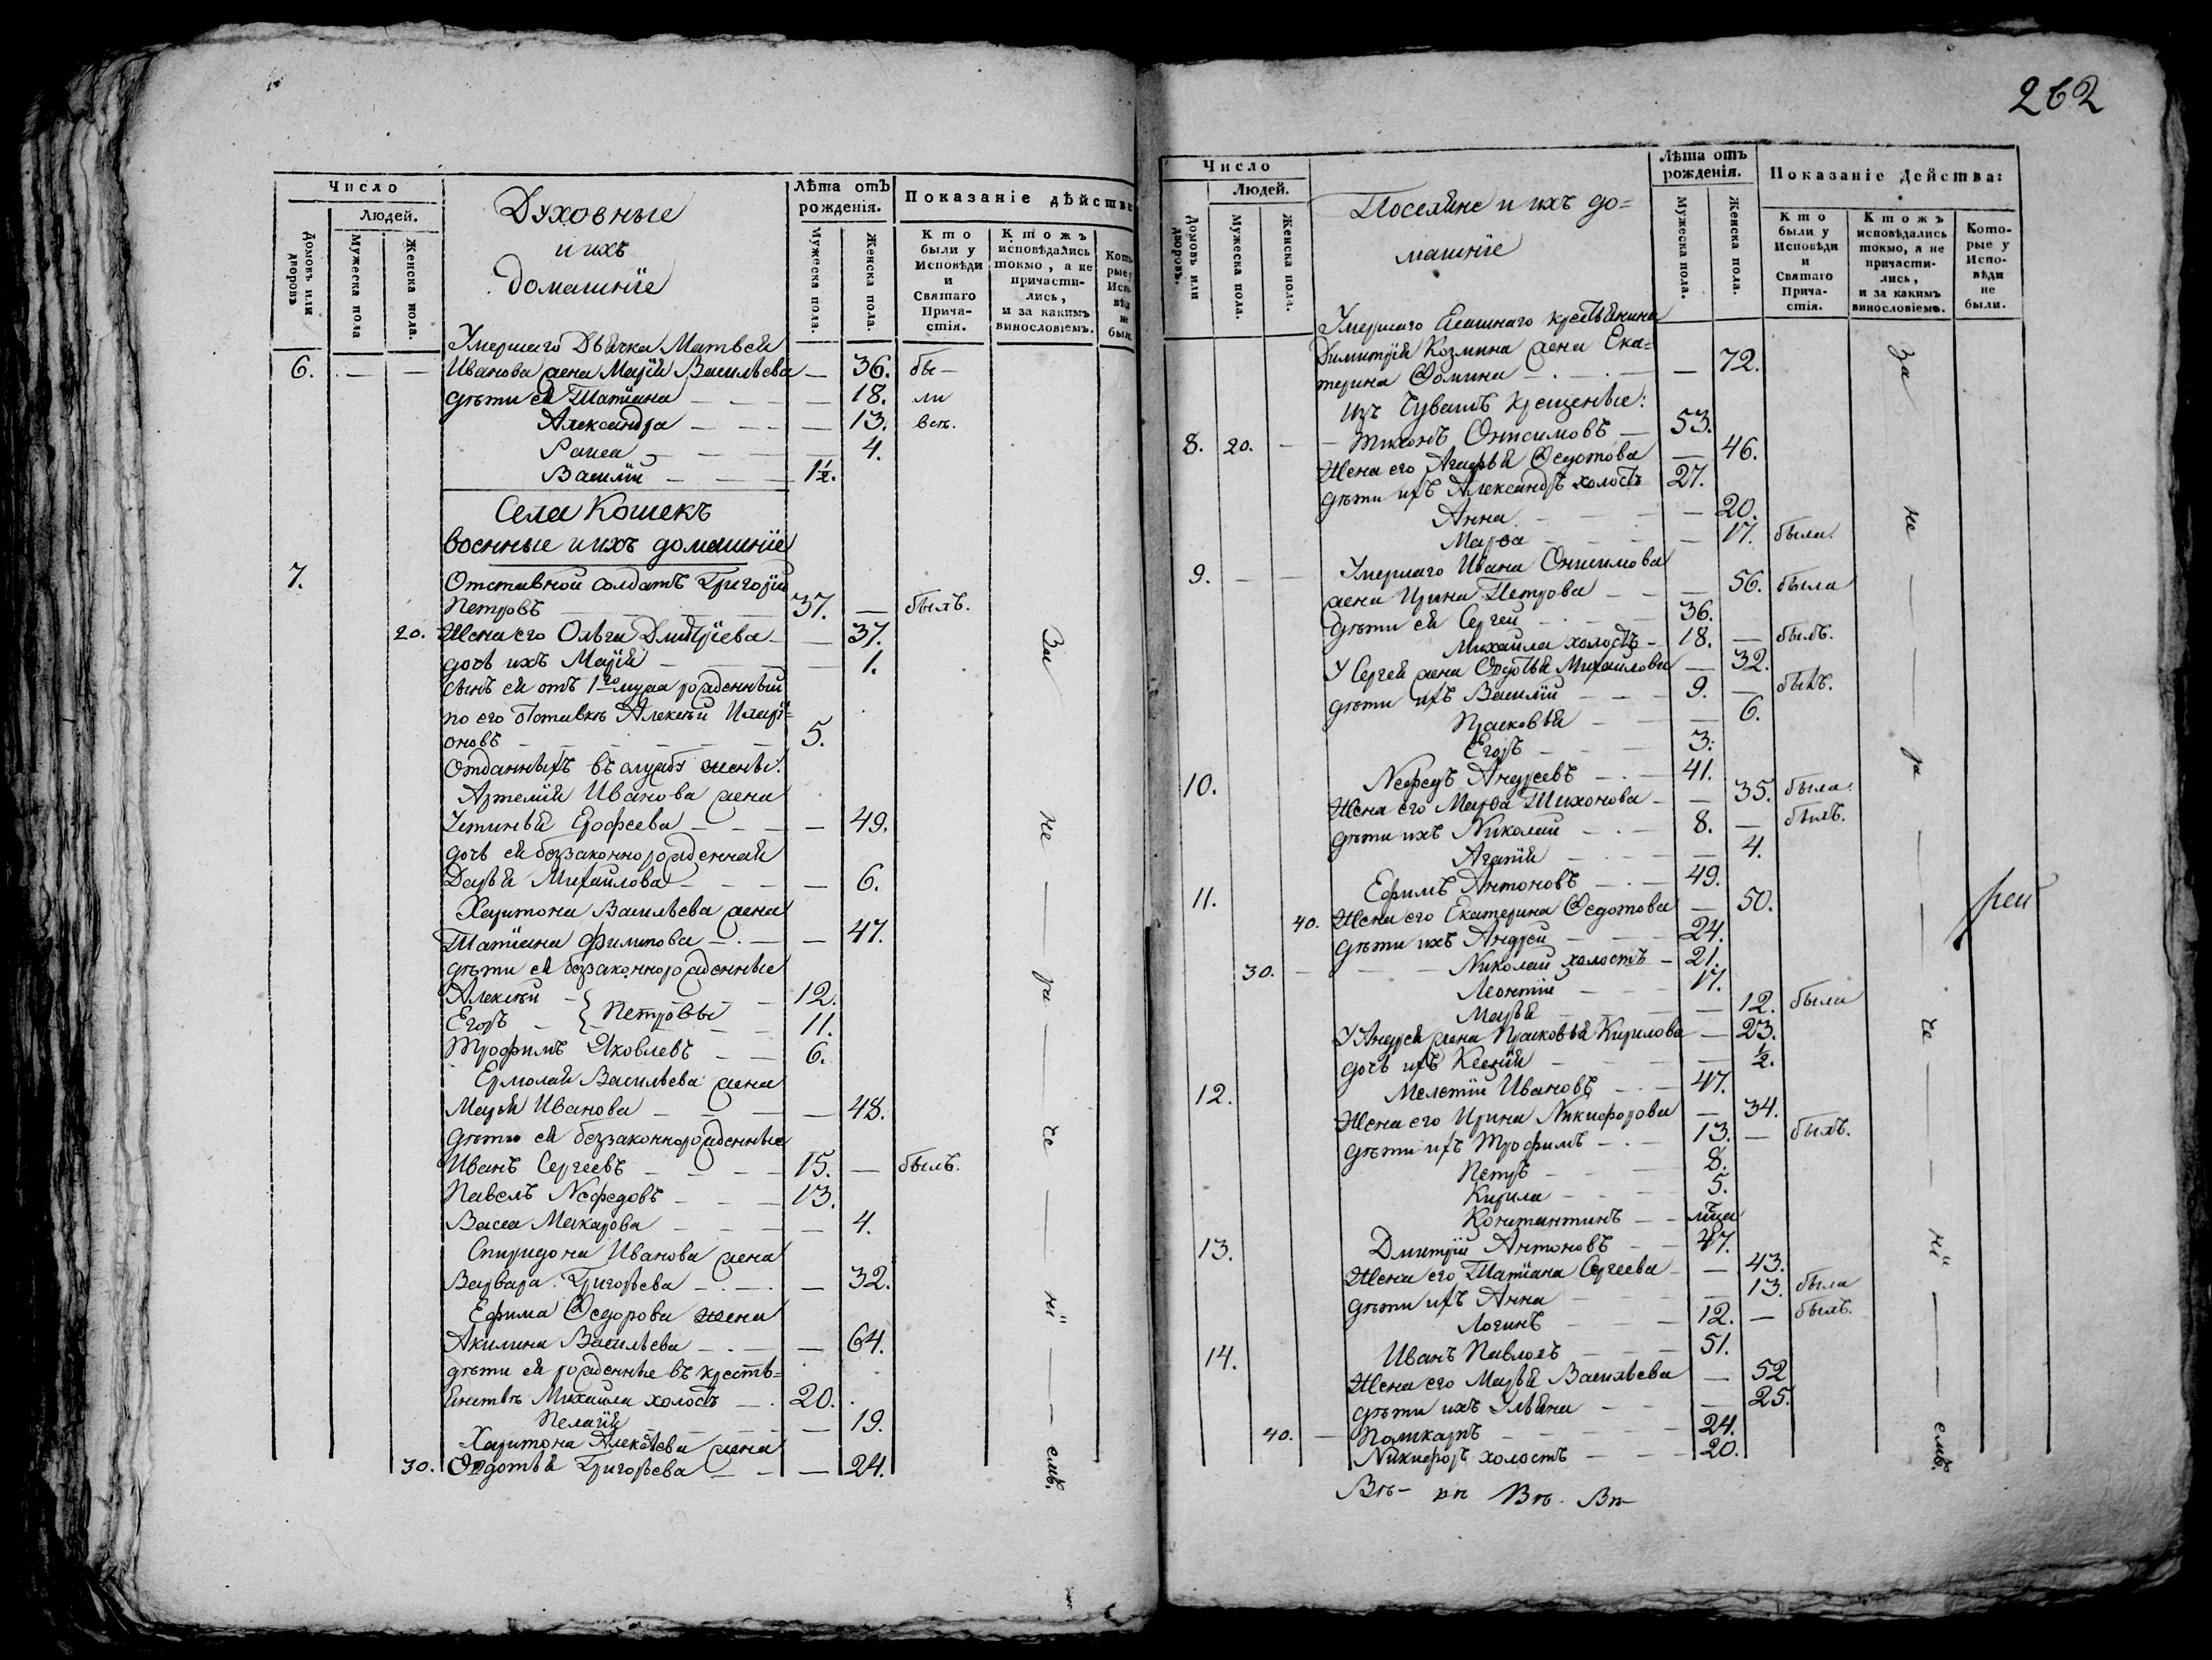 Число
Людей.
Домовъ или дворовъ
Мужеска пола
Женска пола.
Духовные
и ихъ
домашнїе
Лѣта отъ
рожденія.
Мужеска пола.
Женска пола.
Показаніе дѣйств
Кто
были у
Исповѣди
и
Святаго
Прича-
стія.
Ктожъ
исповѣдались
токмо, а не
причасти-
лись,
и за какимъ
винословіемъ.
Кото
рые у
Испо
вѣди
не
были
Умершаго Дьячка Матвея
6. — — Иванова жена Марїя Васильева — 36. бы-
дѣти ея Татїана — 18. ли
Александра — 13. всѣ.
Раиса — 4.
Василїй — 1½.
Села Кошекъ
военные и ихъ домашнїе
7. Отставной солдатъ Григорїй
Петровъ 37. — былъ.
20. Жена его Ольга Дмитрїева — 37.
дочь ихъ Марїя — 1.
сынъ ея отъ 1го мужа рожденный
по его отставкѣ Алексѣй Иларї=
оновъ — 5.
Отданныхъ въ службу жены:
Артемїя Иванова жена
Устинья Ерофеева — 49.
дочь ея беззаконнорожденная
Дарья Михайлова — 6.
Харитона Васильева жена
Татїана Филипова — 47.
дѣти ея беззаконнорожденные
Алексѣй — } Петровы — 12.
Егоръ — 11.
Трофимъ Яковлевъ — 6.
Ермолая Васильева жена
Марья Иванова — 48.
дѣти ея беззаконнорожденные
Иванъ Сергеевъ — 15. — былъ.
Павелъ Нефедовъ — 13.
Васса Макарова — 4.
Спиридона Иванова жена
Варвара Григорьева — 32.
Ефима Ѳедорова жена
Акилина Васильева — 64.
дѣти ея рожденные въ кресть=
янствѣ Михайла холостъ — 20.
Пелагїя — 19.
Харитона Алексѣева жена
30. Ѳедотья Григорьева — 24.
За не — ра — че — нї — емъ.
262
Число
Людей.
Домовъ или дворовъ.
Мужеска пола.
Женска пола.
Поселяне и ихъ до=
машнїе
Лѣта отъ
рожденія.
Мужеска пола.
Женска пола.
Показаніе Действа:
Кто
были у
Исповѣди
и
Святаго
Прича-
стія.
Ктожъ
исповѣдались
токмо, а не
причасти-
лись,
и за какимъ
винословіемъ.
Кото-
рые у
Испо-
вѣди
не
были.
Умершаго Ясашнаго крестьянина
Димитрїя Козмина жена Ека=
терина Фомина — 72.
Изъ Чувашъ крещеные:
8. 20. — Тихонъ Онисимовъ — 53.
Жена его Агафья Ѳедотова — 46.
дѣти ихъ Александръ холостъ 27.
Анна — 20.
Марѳа — 17. была.
9. — — Умершаго Ивана Онисимова
жена Ирина Петрова — 56. была
дѣти ея Сергей — 36.
Михайла холостъ — 18. — былъ.
У Сергея жена Ѳедотья Михайлова — 32.
дѣти ихъ Василїй — 9. — былъ.
Прасковья — 6.
Егоръ — 3.
10. Нефедъ Андреевъ — 41.
Жена его Марѳа Тихонова — 35. была.
дѣти ихъ Николай — 8. — былъ.
Агапїя — 4.
11. Ефимъ Антоновъ — 49.
40. Жена его Екатерина Ѳедотова — 50.
дѣти ихъ Андрей — 24.
30. — Николай холостъ — 21.
Леонтїй — 17.
Марья — 12. была
У Андрея жена Прасковья Кирилова — 23.
дочь ихъ Ксенїя — ½.
12. Мелетїй Ивановъ — 47.
Жена его Ирина Никифорова — 34.
дѣти ихъ Трофимъ — 13. — былъ.
Петръ — 8.
Кирила — 5.
Константинъ —
13. Дмитрїй Антоновъ — 47.
Жена его Татїана Сергеева — 43.
дѣти ихъ Анна — 13. была
Логинъ — 12. — былъ.
14. Иванъ Павловъ — 51.
Жена его Марья Васильева — 52
дѣти ихъ Ульяна — 25.
40. — Поликарпъ — 24.
Никифоръ холостъ — 20.
За не — ра — че — нї — емъ.
рей